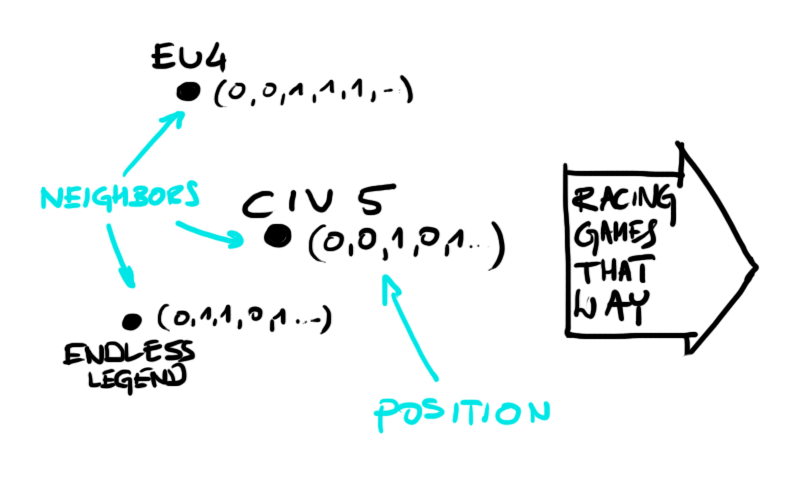 EU4
(0,0,1,1,1,...)
NEIGHBORS
CIV 5
(0,0,1,0,1...)
(0,1,1,0,1...)
ENDLESS
LEGEND
POSITION
RACING
GAMES
THAT
WAY